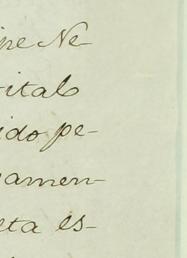 ne Ne-
ital
ido pe-
amen-
eta es-